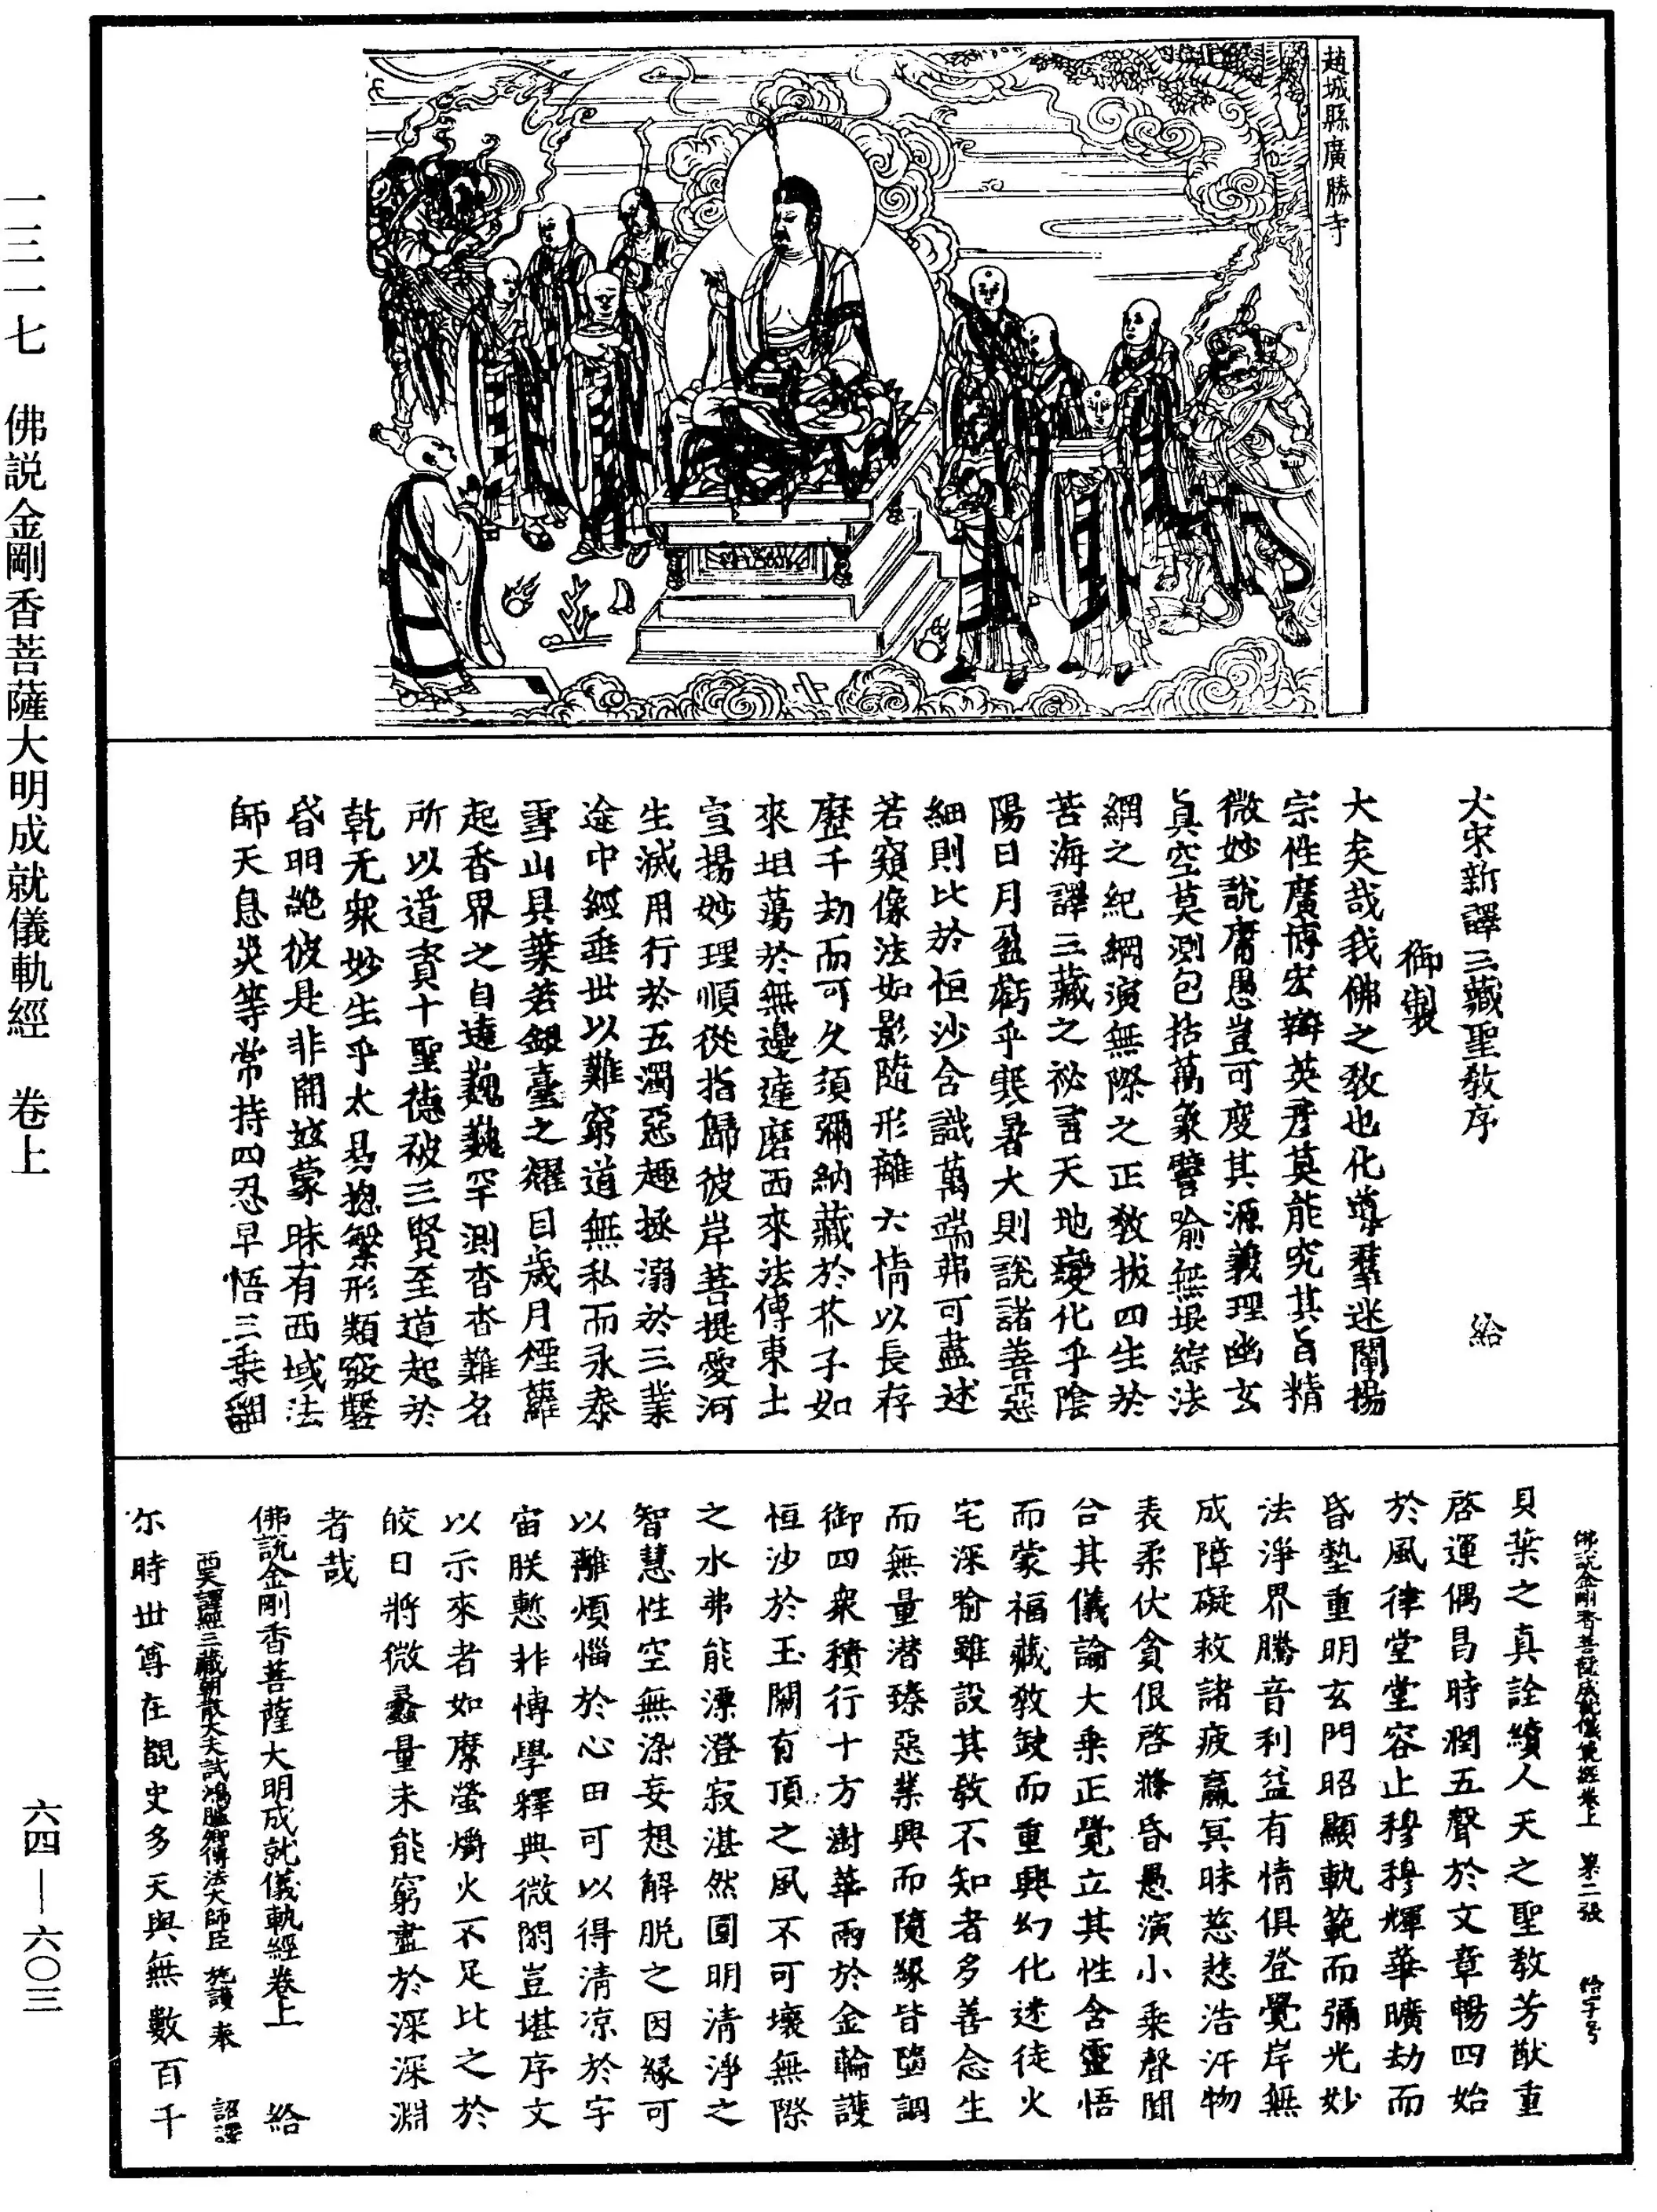 趙城縣廣勝寺
大宋新譯三藏聖教序 給
御製
大矣哉我佛之教也化導羣迷闡揚
宗性廣博宏辯英彥莫能究其旨精
微妙說庸愚豈可度其源義理幽玄
真空莫測包括萬象譬喻無垠綜法
網之紀綱演無際之正教拔四生於
苦海譯三藏之祕言天地變化乎陰
陽日月盈虧乎寒暑大則說諸善惡
細則比於恒沙含識萬端弗可盡述
若窺像法如影隨形離六情以長存
歷千劫而可久須彌納藏於芥子如
來坦蕩於無邊達磨西來法傳東土
宣揚妙理順從指歸彼岸菩提愛河
生滅用行於五濁惡趣拯溺於三業
途中經垂世以難窮道無私而永泰
雪山貝葉若銀臺之耀目歲月煙蘿
起香界之自遠巍巍罕測杳杳難名
所以道資十聖德被三賢至道起於
乾元眾妙生乎太易摠繁形類竅鑿
昏明絶彼是非開茲蒙昧有西域法
師天息災等常持四忍早悟三乘翻
佛說金剛香菩薩成就儀軌經卷上 第二張 給字号
貝葉之真詮續人天之聖教芳猷重
啓運偶昌時潤五聲於文章暢四始
於風律堂堂容止穆穆輝華曠劫而
昏墊重明玄門昭顯軌範而彌光妙
法淨界騰音利益有情俱登覺岸無
成障礙救諸疲羸冥昧慈悲浩汗物
表柔伏貪佷啓滌昏愚演小乘聲聞
合其儀論大乘正覺立其性含靈悟
而蒙福藏教缺而重興幻化迷徒火
宅深喻雖設其教不知者多善念生
而無量潜臻惡業興而隨緣皆墮調
御四衆積行十方澍華雨於金輪護
恒沙於玉闕有頂之風不可壞無際
之水弗能漂澄寂湛然圓明清淨之
智慧性空無染妄想解脱之因緣可
以離煩惱於心田可以得清凉於宇
宙朕慙非博學釋典微閑豈堪序文
以示來者如縻螢爝火不足比之於
皎日將微蠡量未能窮盡於深深淵
者哉
佛說金剛香菩薩大明成就儀軌經卷上 給
西天譯經三藏朝散大夫試鴻臚卿傳法大師臣施護奉 詔譯
尒時世尊在覩史多天與無數百千
一三一七 佛説金剛香菩薩大明成就儀軌經 卷上
六四—六〇三